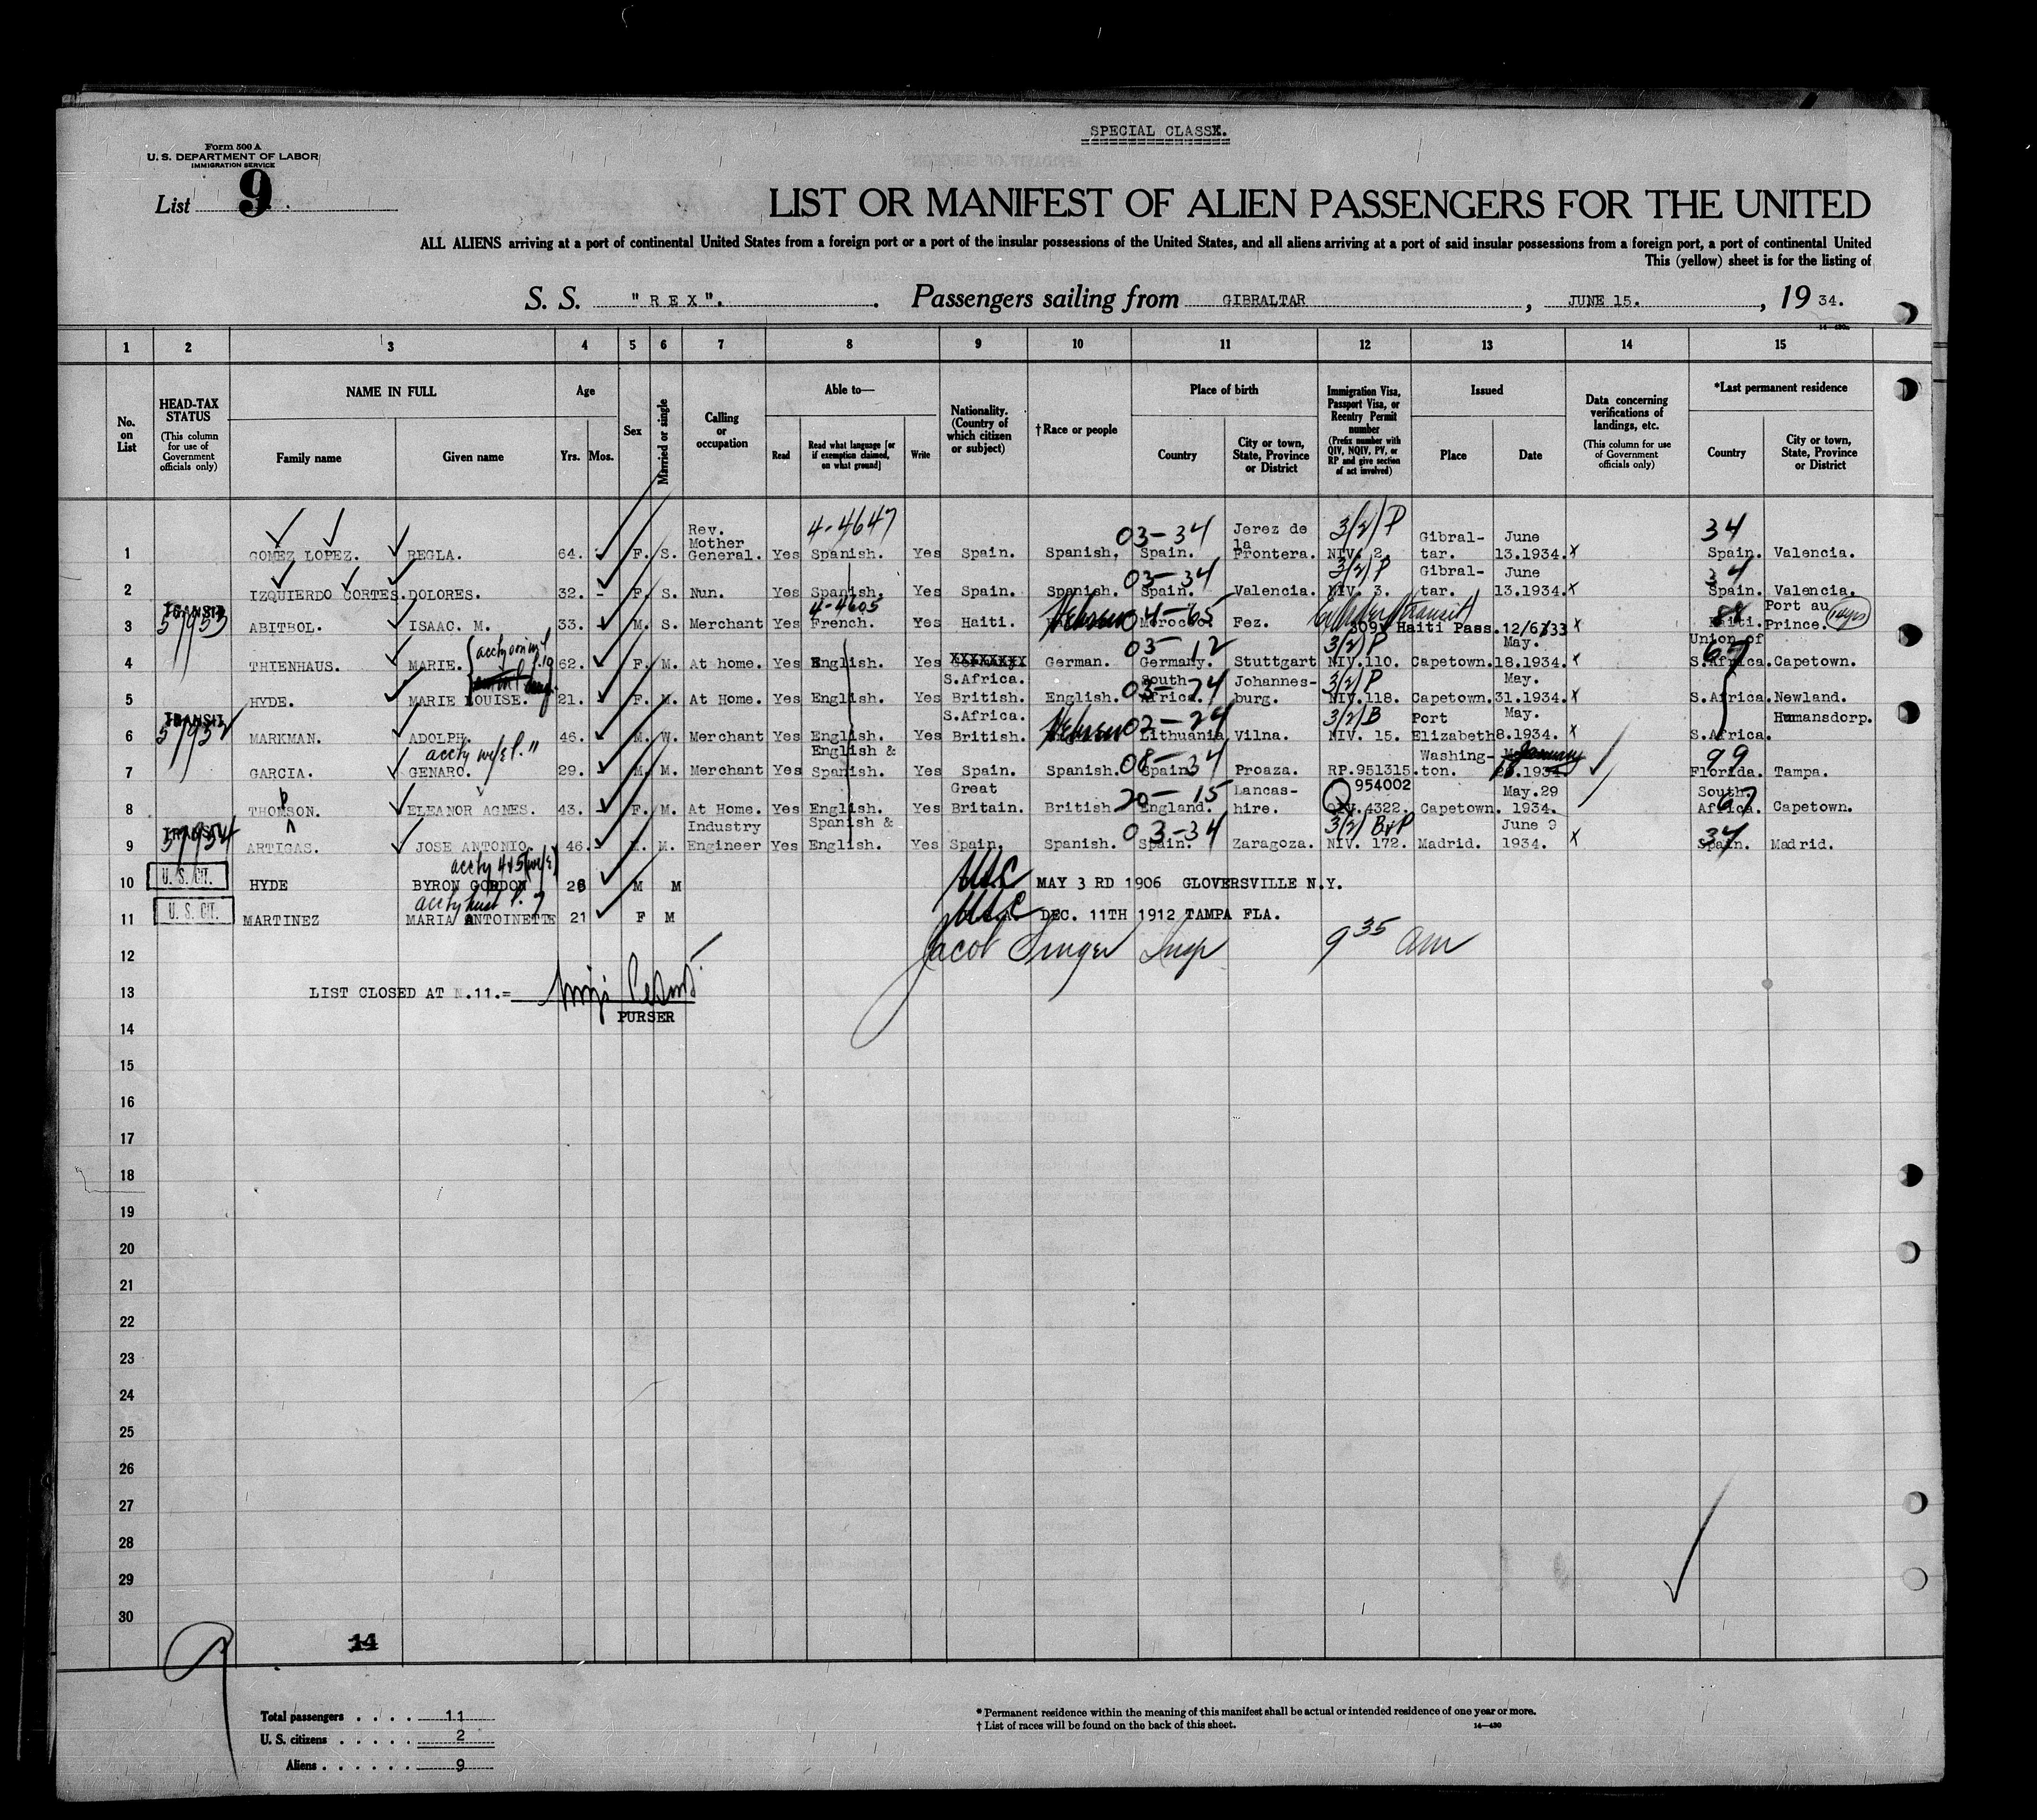 SPECIAL CLASSX.
Form 500 A
U. S. DEPARTMENT OF LABOR
IMMIGRATION SERVICE
List 9
LIST OR MANIFEST OF ALIEN PASSENGERS FOR THE UNITED
ALL ALIENS arriving at a port of continental United States from a foreign port or a port of the insular possessions of the United States, and all aliens arriving at a port of said insular possessions from a foreign port, a port of continental United
This (yellow) sheet is for the listing of
S. S. "REX". Passengers sailing from GIBRALTAR, JUNE 15., 19 34.
1 2 3 4 5 6 7 8 9 10 11 12 13 14 15
No. on List
HEAD-TAX STATUS
(This column for use of Government officials only)
NAME IN FULL
Family name Given name
Age
Yrs. Mos.
Sex
Married or single
Calling or occupation
Able to—
Read
Read what language [or if exemption claimed, on what ground]
Write
Nationality. (Country of which citizen or subject)
†Race or people
Place of birth
Country
City or town, State, Province or District
Immigration Visa, Passport Visa, or Reentry Permit number
(Prefix number with QIV, NQIV, PV, or RP and give section of act involved)
Issued
Place Date
Data concerning verifications of landings, etc.
(This column for use of Government officials only)
*Last permanent residence
Country
City or town, State, Province or District
4-4647 03-34 3/2/P 34
1 GOMEZ LOPEZ. REGLA. 64. - F. S. Rev. Mother General. Yes Spanish. Yes Spain. Spanish. Spain. Jerez de la Frontera. NIV. 2. Gibral-tar. June 13.1934. x Spain. Valencia.
03-34 3/2/P 34
2 IZQUIERDO CORTES. DOLORES. 32. - F. S. Nun. Yes Spanish. Yes Spain. Spanish. Spain. Valencia. NIV. 3. Gibral-tar. June 13.1934. x Spain. Valencia.
TRANSIT 57953 4-4605 Hebrew 04-65
3 ABITBOL. ISAAC. M. 33. M. S. Merchant Yes French. Yes Haiti. Morocco. Fez. Haiti Pass. 12/6/33 x Haiti. Port au Prince.
03-12 3/2/P 67
4 THIENHAUS. MARIE. 62. F. M. At home. Yes English. Yes German. Germany. Stuttgart NIV.110. Capetown. May. 18.1934. x Union of S.Africa. Capetown.
03-74 3/2/P
5 HYDE. MARIE LOUISE. 21. F. M. At Home. Yes English. Yes S.Africa. British. English. South Africa. Johannes-burg. NIV.118. Capetown. May. 31.1934. x S.Africa. Newland.
TRANSIT 57952 Hebrew 02-24 3/2/B
6 MARKMAN. ADOLPH. 46. M. W. Merchant Yes English. Yes S.Africa. British. Lithuania Vilna. NIV. 15. Port Elizabeth May. 8.1934. x S.Africa. Humansdorp.
accty wife l. 11 08-34 99
7 GARCIA. GENARO. 29. M. M. Merchant Yes English & Spanish. Yes Spain. Spanish. Spain Proaza. RP.951315. Washing-ton. January 1934. Florida. Tampa.
p 20-15 954002 67
8 THOMSON. ELEANOR AGNES. 43. - F. M. At Home. Yes English. Yes Great Britain. British England. Lancas-hire. QIV.4322. Capetown. May.29 1934. South. Africa. Capetown.
TRANSIT 57954 03-34 3/2/B&P 34
9 ARTIGAS. JOSE ANTONIO. 46. M. M. Industry Engineer Yes Spanish & English. Yes Spain. Spanish. Spain. Zaragoza. NIV. 172. Madrid. June 9 1934. x Spain. Madrid.
accty 4&5
U. S. CIT. 10 HYDE BYRON GORDON 28 M M USC MAY 3 RD 1906 GLOVERSVILLE N.Y.
accty husb l. 7
U. S. CIT. 11 MARTINEZ MARIA ANTOINETTE 21 F M USC DEC. 11TH 1912 TAMPA FLA.
12 Jacob Singer Insp 9 35 am
13 LIST CLOSED AT N.11.=
PURSER
14
15
16
17
18
19
20
21
22
23
24
25
26
27
28
29
30
14
Total passengers . . . . 11
U. S. citizens . . . . . 2
Aliens . . . . . . 9
* Permanent residence within the meaning of this manifest shall be actual or intended residence of one year or more.
† List of races will be found on the back of this sheet. 14—430